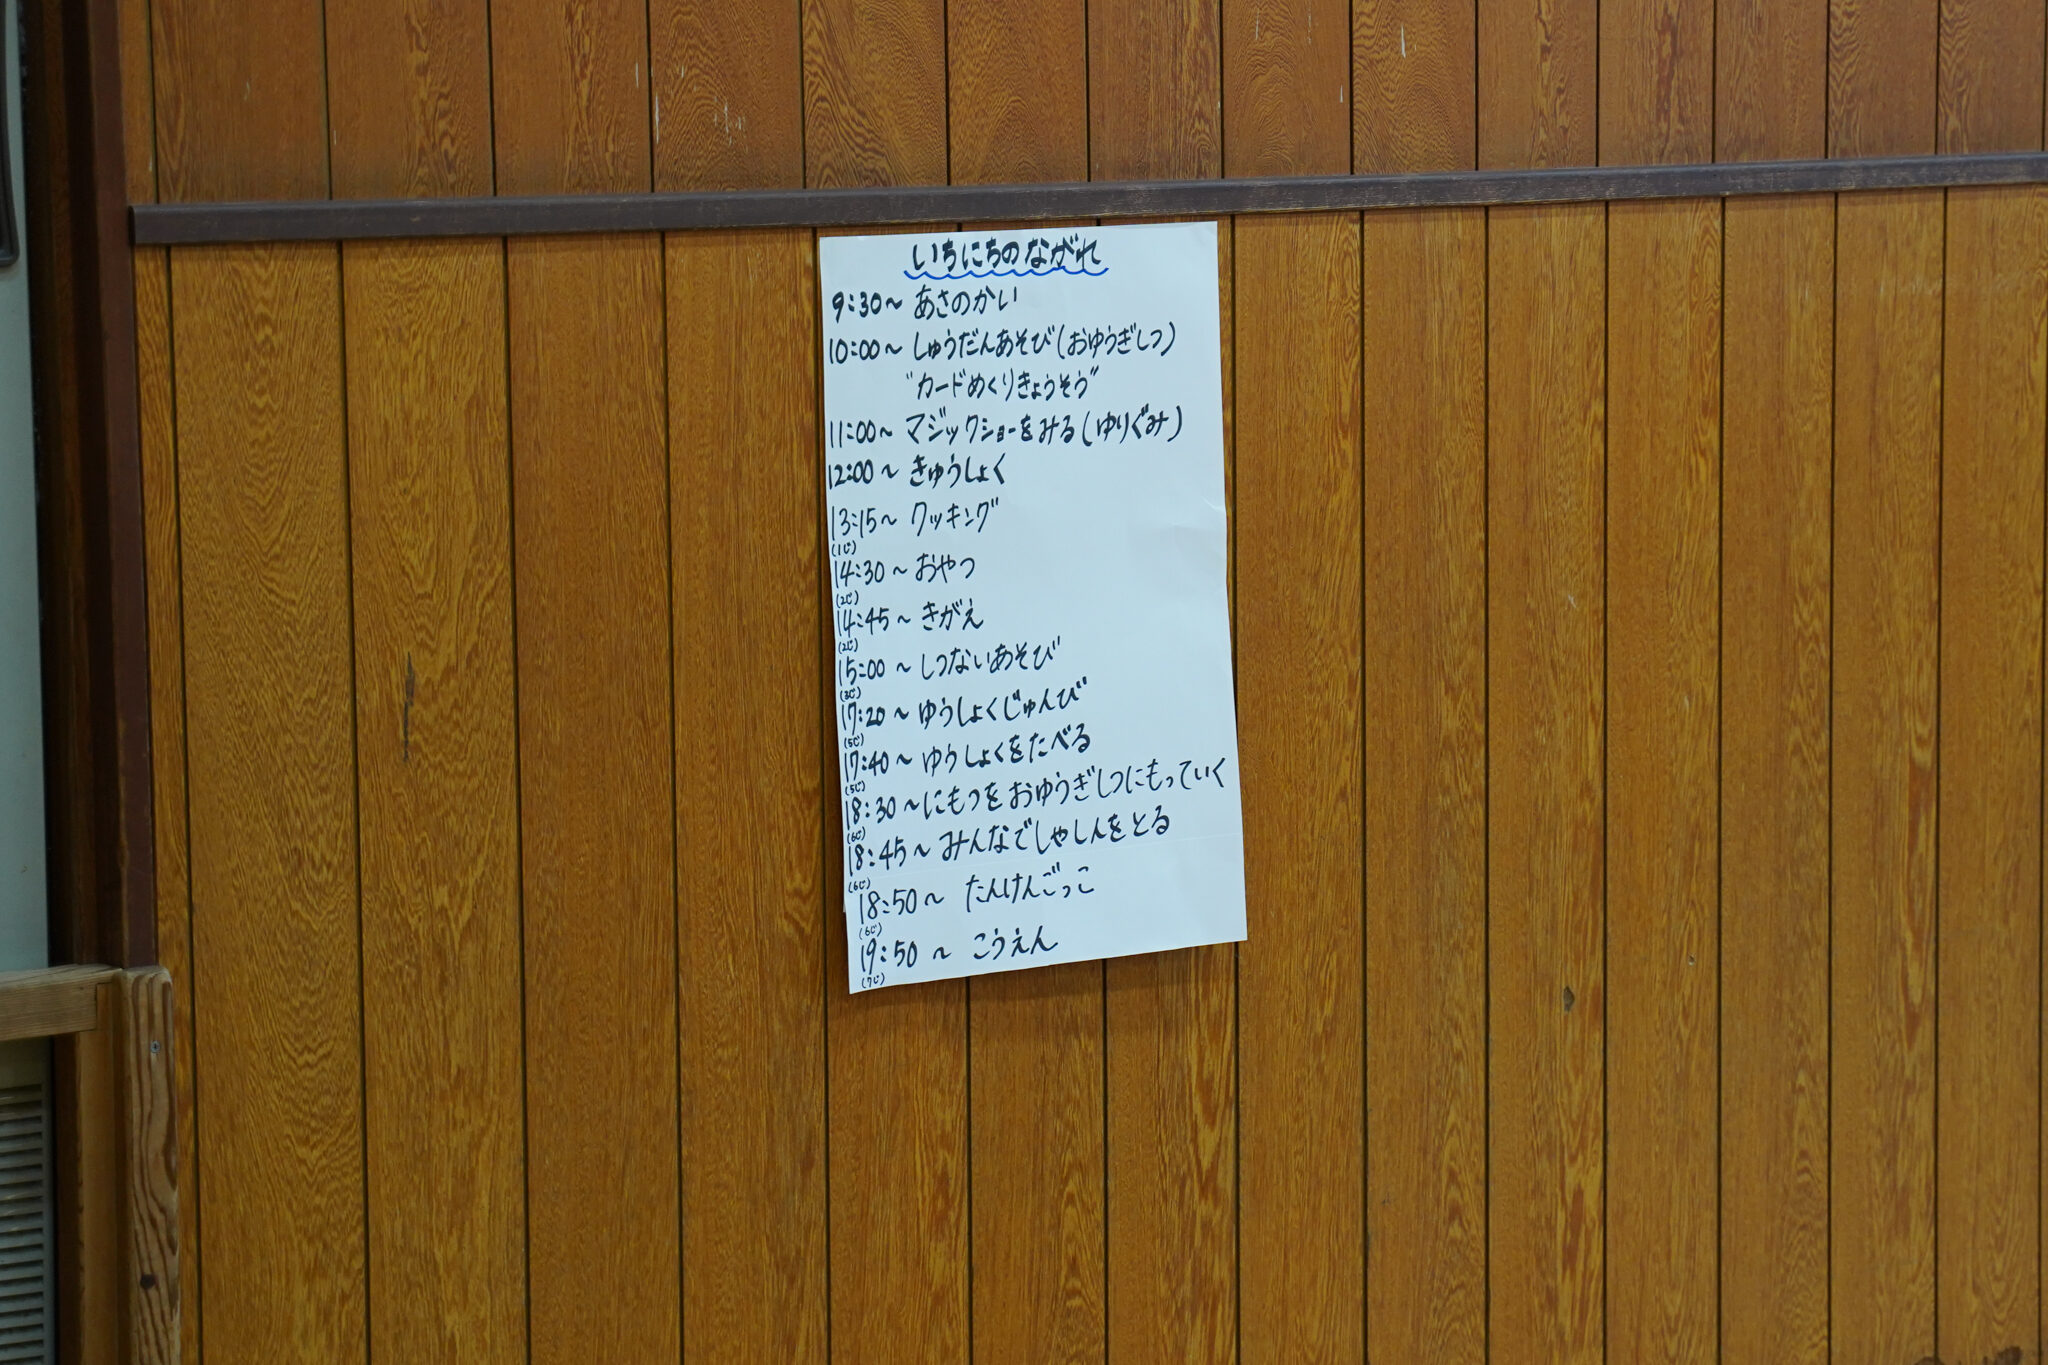 いちにちのながれ
9:30～ あさのかい
10:00～ しゅうだんあそび(おゆうぎしつ)
"カードめくりきょうそう"
11:00～ マジックショーをみる(ゆりぐみ)
12:00～ きゅうしょく
13:15～ クッキング
(1じ)
14:30～ おやつ
(2じ)
14:45～ きがえ
(2じ)
15:00～ しつないあそび
(3じ)
17:20～ ゆうしょくじゅんび
(5じ)
17:40～ ゆうしょくをたべる
(5じ)
18:30～にもつをおゆうぎしつにもっていく
(6じ)
18:45～ みんなでしゃしんをとる
(6じ)
18:50～ たんけんごっこ
(6じ)
19:50～ こうえん
(7じ)